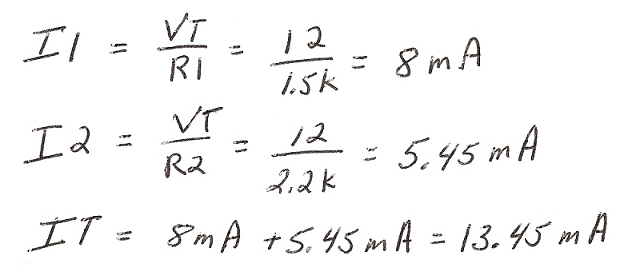 I1 = VT/R1 = 12/1.5k = 8mA
I2 = VT/R2 = 12/2.2k = 5.45mA
IT = 8mA + 5.45mA = 13.45mA